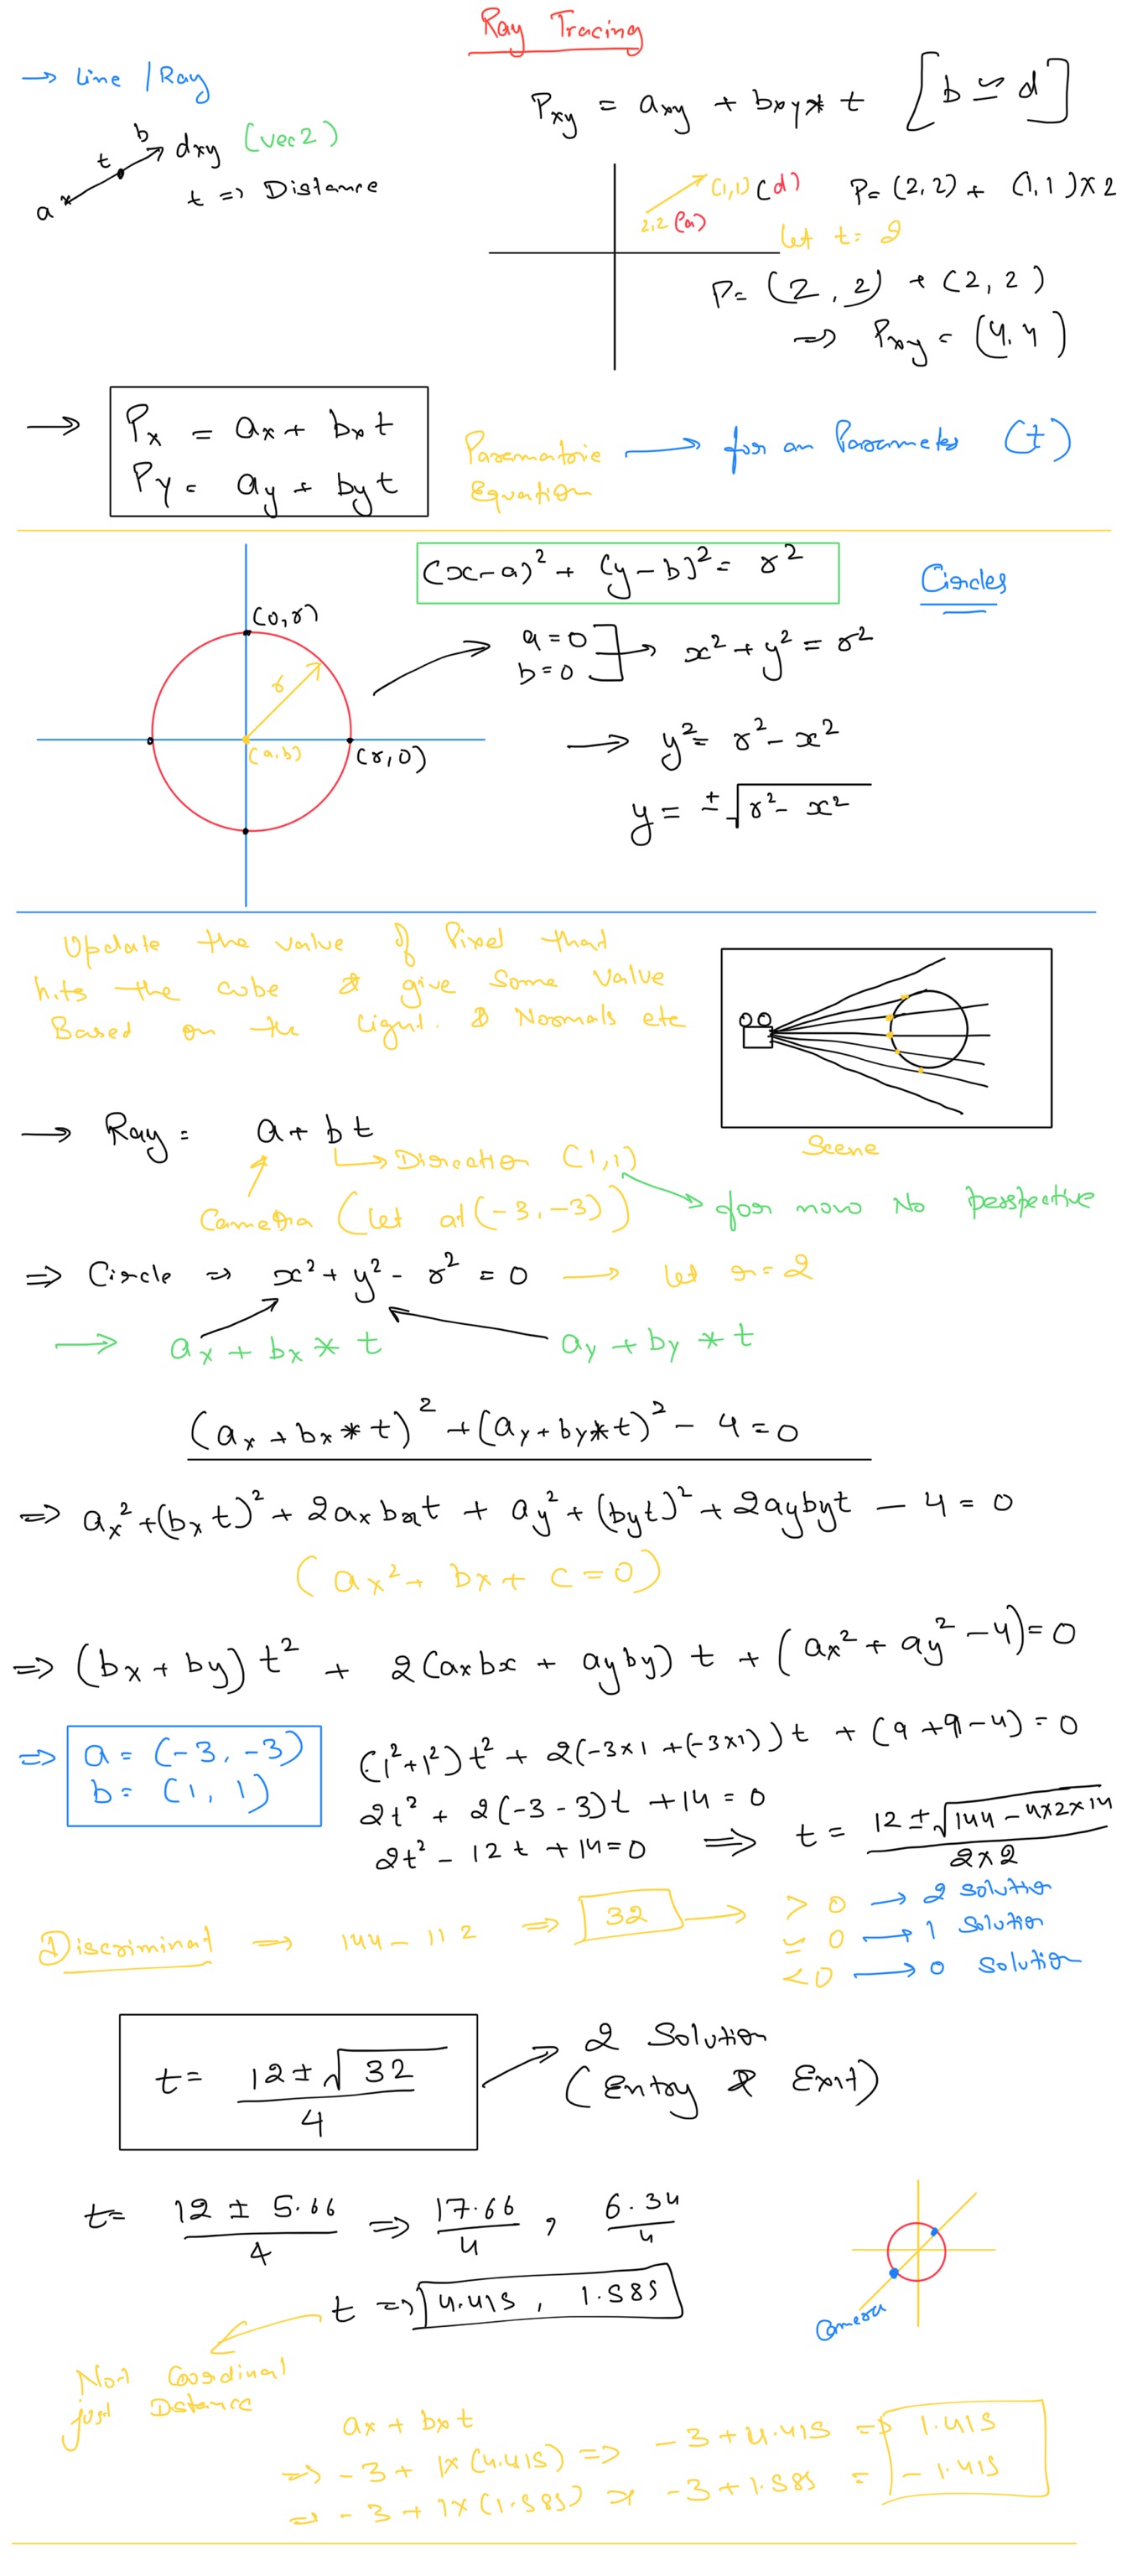 Ray Tracing
→ Line / Ray
Pxy = axy + bxy * t [b ≃ d]
a t b dxy (vec2)
t => Distance
(1,1) (d)
2,2 (a)
P = (2,2) + (1,1) × 2
let t = 2
P = (2,2) + (2,2)
=> Pxy = (4,4)
→ Px = ax + bx t
Py = ay + by t
Parematoric Equation → for an Parameter (t)
(x-a)² + (y-b)² = r²
Circles
(0,r)
r
(a,b)
(r,0)
a = 0
b = 0
→ x² + y² = r²
→ y² = r² - x²
y = ±√r² - x²
Update the value of Pixel that
hits the cube & give some value
Based on the Light. & Normals etc
Scene
→ Ray = a + bt
→ Direction (1,1)
Camera (let at (-3,-3))
→ for now No perspective
=> Circle => x² + y² - r² = 0 → let r = 2
→ ax + bx * t
ay + by * t
(ax + bx * t)² + (ay + by * t)² - 4 = 0
=> ax² + (bx t)² + 2ax bxt + ay² + (byt)² + 2aybyt - 4 = 0
(ax² + bx + c = 0)
=> (bx + by) t² + 2(axbx + ayby) t + (ax² + ay² - 4) = 0
=> a = (-3, -3)
b = (1, 1)
(1² + 1²) t² + 2(-3×1 + (-3×1)) t + (9 + 9 - 4) = 0
2t² + 2(-3 - 3)t + 14 = 0
2t² - 12t + 14 = 0 => t = 12 ± √144 - 4×2×14 / 2×2
Discriminat => 144 - 112 => 32 →
> 0 → 2 solution
= 0 → 1 Solution
< 0 → 0 Solution
t = 12 ± √32 / 4
2 Solution
(Entry & Exit)
t = 12 ± 5.66 / 4 => 17.66 / 4 , 6.34 / 4
t => 4.415, 1.585
Camera
Not Coordinat
just Distance
ax + bxt
=> -3 + 1×(4.415) => -3 + 4.415 => 1.415
=> -3 + 1×(1.585) => -3 + 1.585 = -1.415